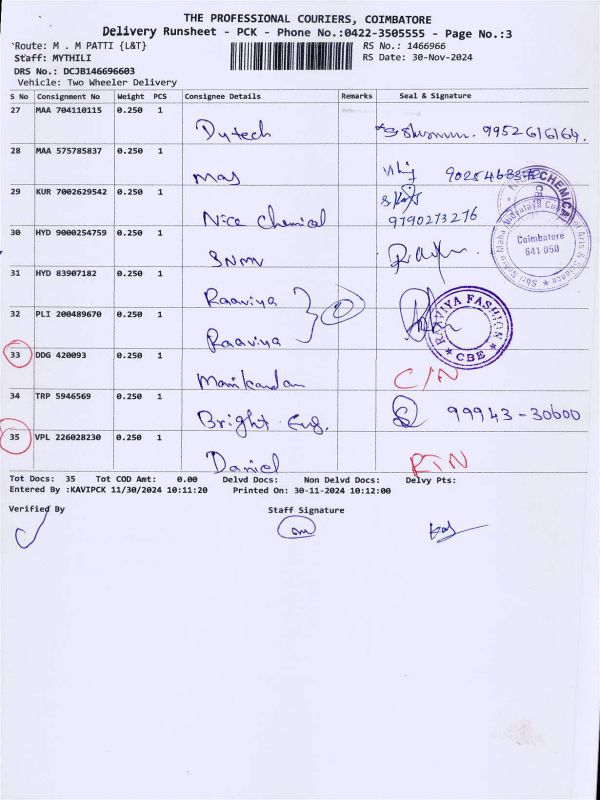 THE PROFESSIONAL COURIERS, COIMBATORE
Delivery Runsheet - PCK - Phone No.:0422-3505555 - Page No.:3
Route: M . M PATTI {L&T}
RS No.: 1466966
Staff: MYTHILI
RS Date: 30-Nov-2024
DRS No.: DCJB146696603
Vehicle: Two Wheeler Delivery
S No Consignment No Weight PCS Consignee Details Remarks Seal & Signature
27 MAA 704110115 0.250 1
Dytech 9952616164.
28 MAA 575785837 0.250 1
Mas
29 KUR 7002629542 0.250 1
Nice Chemical 9790273276
NICE CHEMICAL
CBE
30 HYD 9000254759 0.250 1
SNMV
Coimbatore
641 050
31 HYD 83907182 0.250 1
Raaviya
32 PLI 200489670 0.250 1
Raaviya
RAAVIYA FASHION
★ CBE ★
33 DDG 420093 0.250 1
Manikandan C/N
34 TRP 5946569 0.250 1
Bright Eng. 99943-30600
35 VPL 226028230 0.250 1
Daniel RTN
Tot Docs: 35 Tot COD Amt: 0.00 Delvd Docs: Non Delvd Docs: Delvy Pts:
Entered By :KAVIPCK 11/30/2024 10:11:20 Printed On: 30-11-2024 10:12:00
Verified By Staff Signature